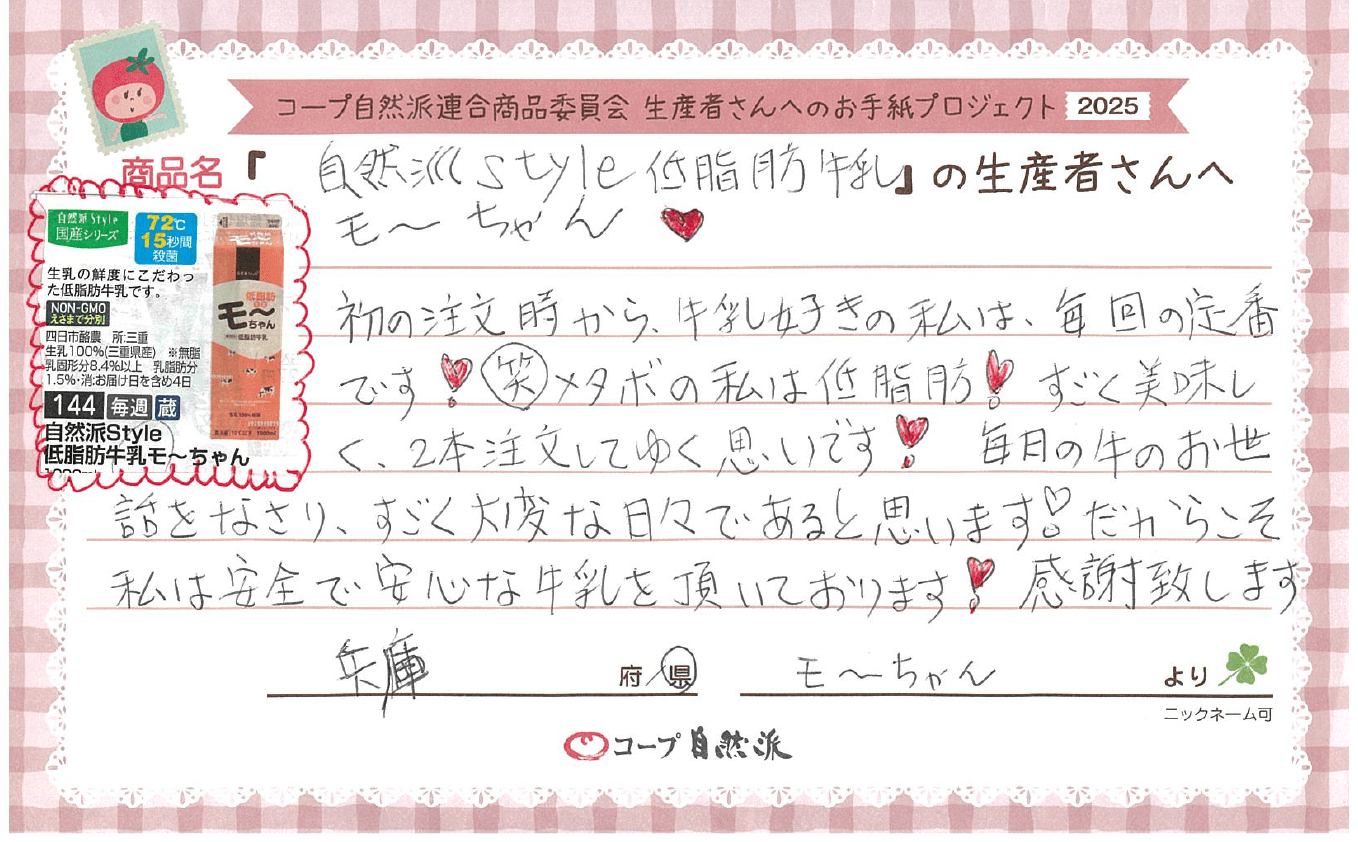 コープ自然派連合商品委員会 生産者さんへのお手紙プロジェクト 2025
商品名『自然派style低脂肪牛乳』の生産者さんへ
モ〜ちゃん
自然派Style
国産シリーズ
72℃
15秒間
殺菌
生乳の鮮度にこだわっ
た低脂肪牛乳です。
NON-GMO
えさまで分別
四日市酪農 所:三重
生乳100%(三重県産) ※無脂
乳固形分8.4%以上 乳脂肪分
1.5%・消:お届け日を含め4日
144 毎週 蔵
自然派Style
低脂肪牛乳モ〜ちゃん
低脂肪
モ〜
ちゃん
低脂肪牛乳
初の注文時から、牛乳好きの私は、毎回の定番
です! 笑 メタボの私は低脂肪! すごく美味し
く、2本注文してゆく思いです! 毎日の牛のお世
話をなさり、すごく大変な日々であると思います! だからこそ
私は安全で安心な牛乳を頂いております! 感謝致します
兵庫 府/県 モ〜ちゃん より
ニックネーム可
コープ自然派